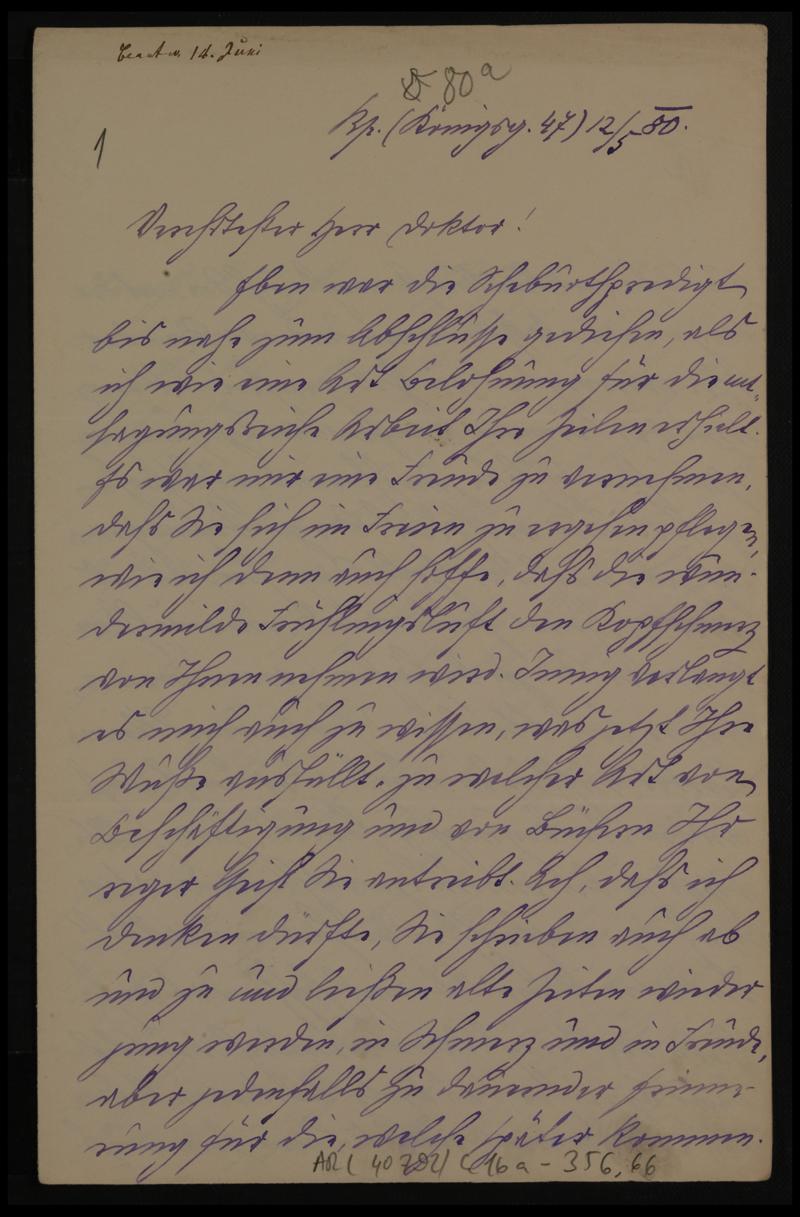 14. Juni
D 80a
1
Bp. (Königsg. 47) 12/5 80.
Verehrtester Herr Doktor!
Eben war die Schebuothpredigt
bis nahe zum Abschlusse gediehen, als
ich wie eine Art Belohnung für die ent-
sagungsreiche Arbeit Ihre Zeilen erhielt.
Es war mir eine Freude zu vernehmen,
daß Sie sich im Freien zu ergehen pflegen,
wie ich denn auch hoffe, daß die wun-
dermilde Frühlingsluft den Kopfschmerz
von Ihnen nehmen wird. Innig verlangt
es mich auch zu wissen, was jetzt Ihre
Muße ausfüllt, zu welcher Art von
Beschäftigung und von Büchern Ihr
reger Geist Sie antreibt. Ach, daß ich
denken dürfte, Sie schrieben auch ab
und zu und ließen alte Zeiten wieder
jung werden, in Schmerz und in Freude,
aber jedenfalls zu dauernder Erinne-
rung für die, welche später kommen.
AR( 40792/ C16a - 356, 66